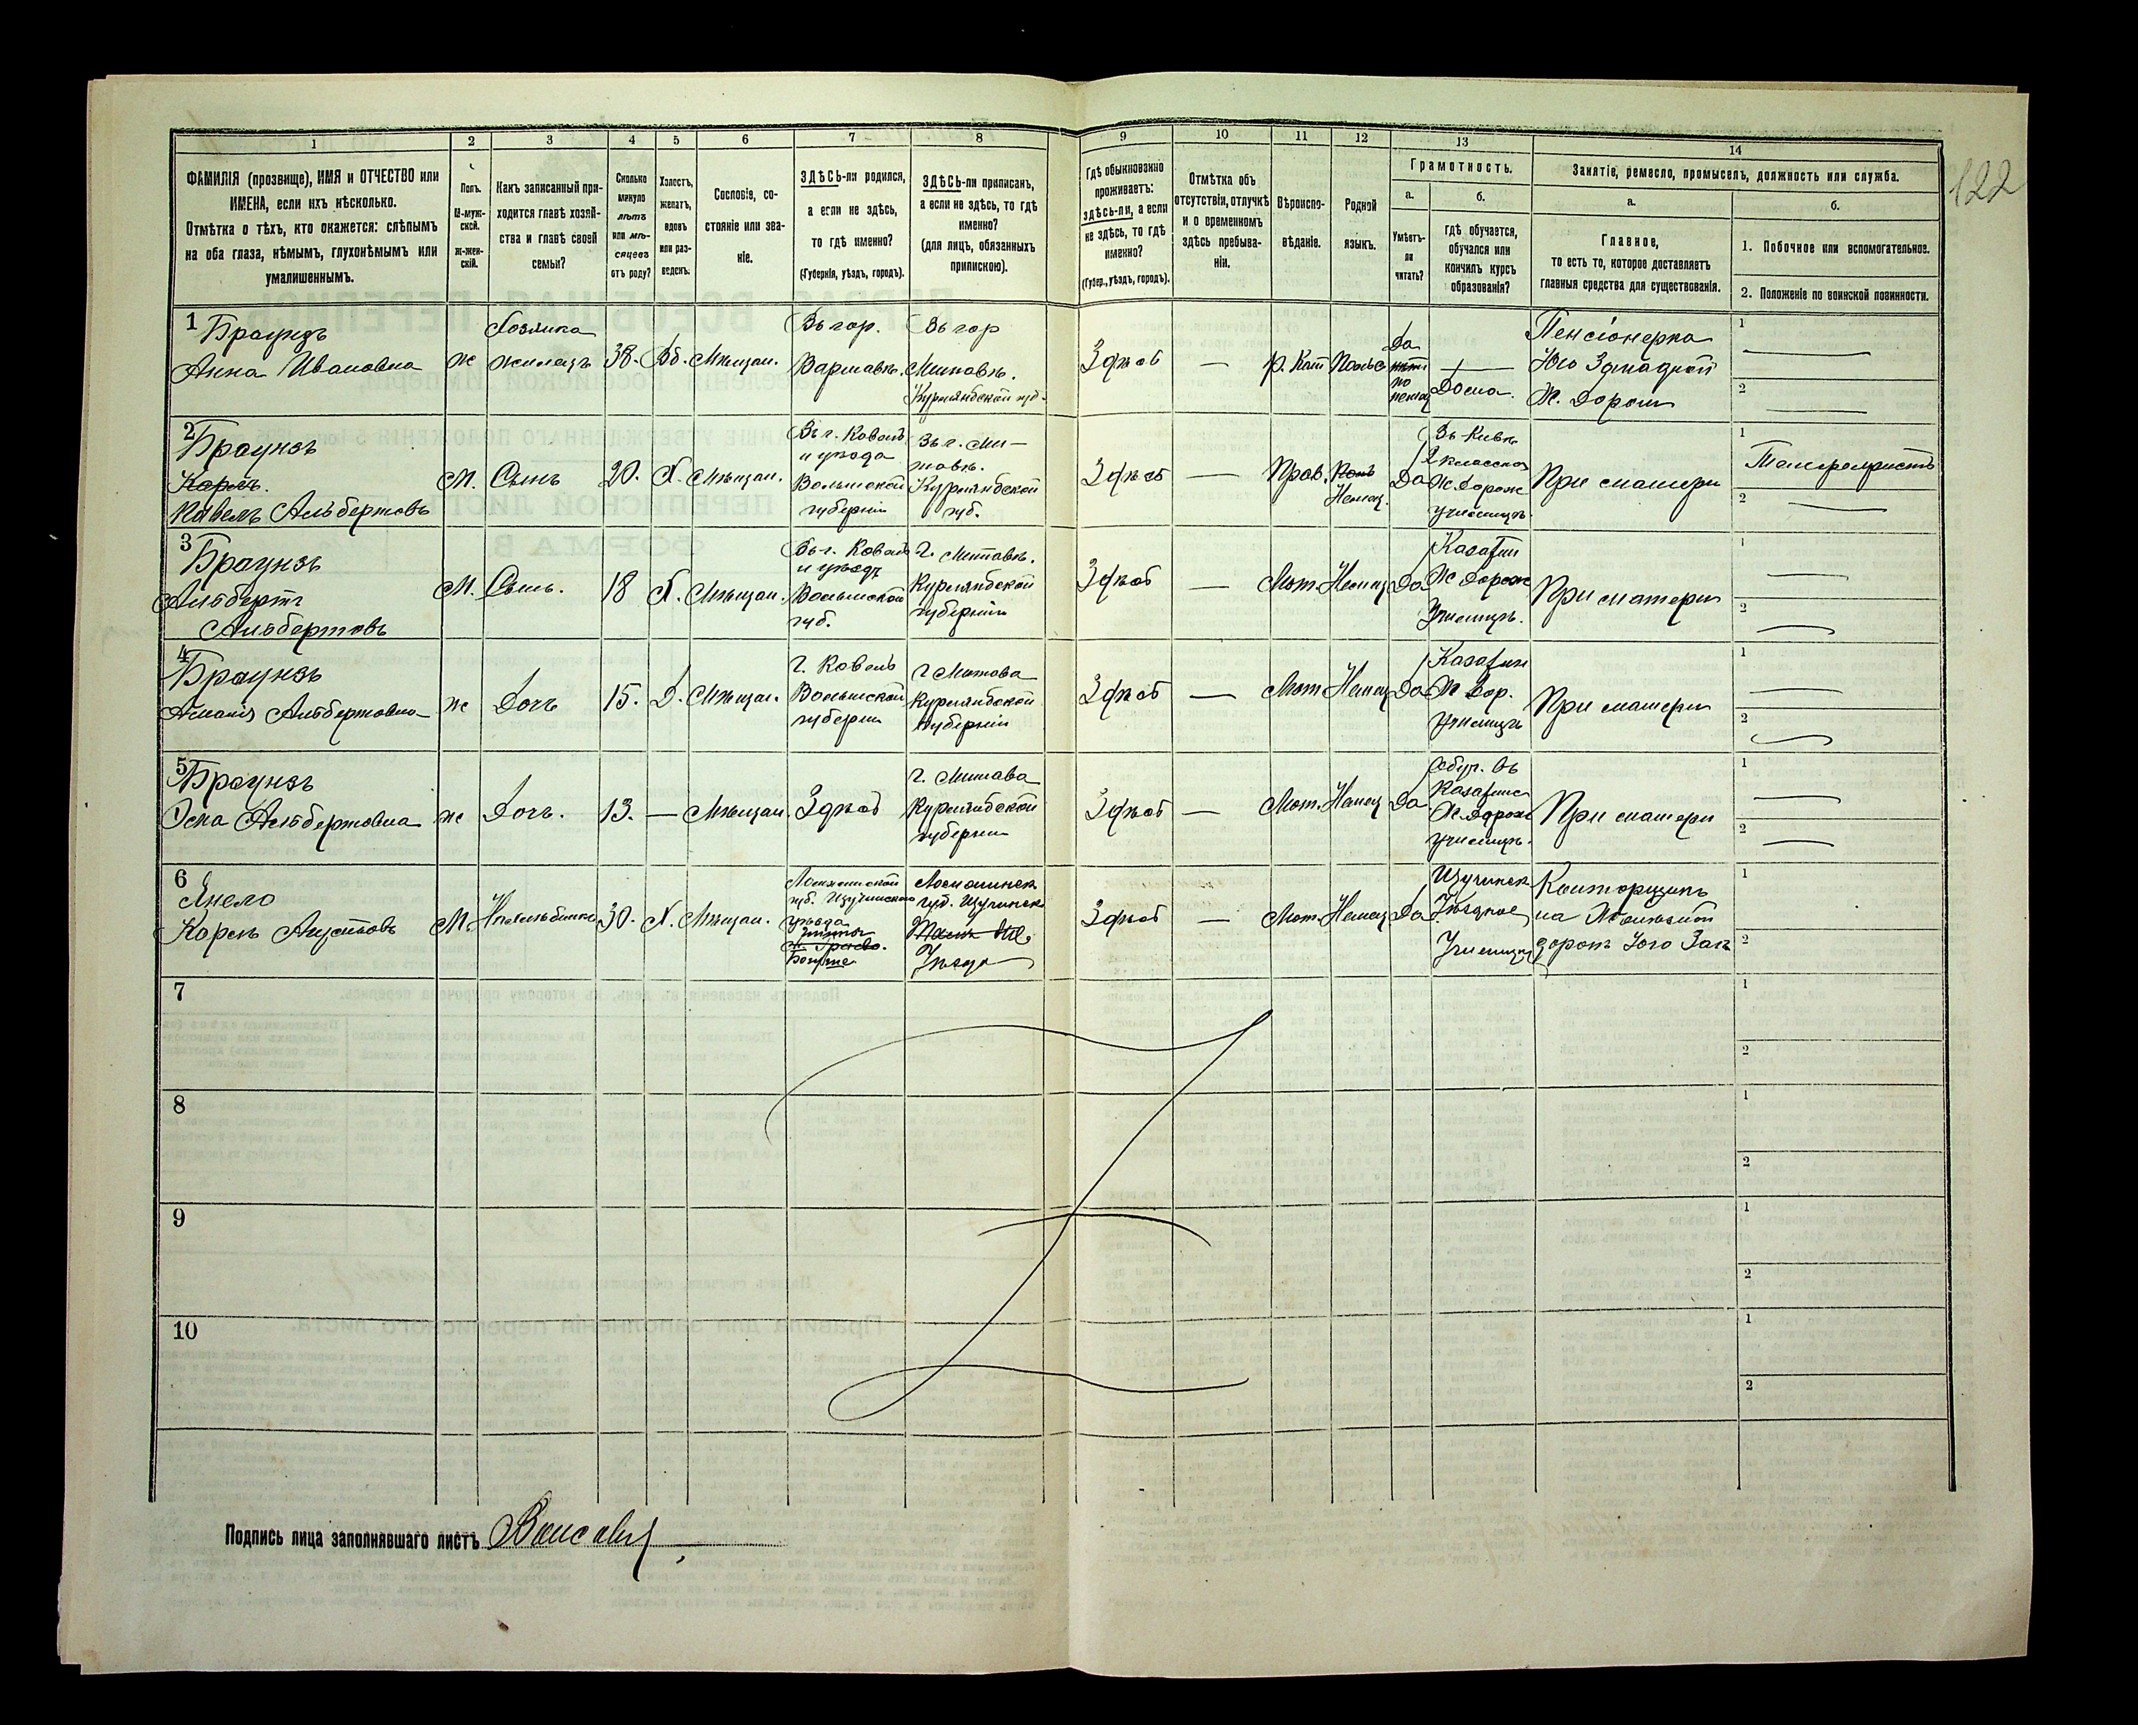 122
1 2 3 4 5 6 7 8 9 10 11 12 13 14
ФАМИЛІЯ (прозвище), ИМЯ и ОТЧЕСТВО или
ИМЕНА, если ихъ нѣсколько.
Отмѣтка о тѣхъ, кто окажется: слѣпымъ
на оба глаза, нѣмымъ, глухонѣмымъ или
умалишеннымъ.
Полъ.
М-муж-
ской.
Ж-жен-
скій.
Какъ записанный при-
ходится главѣ хозяй-
ства и главѣ своей
семьи?
Сколько
минуло
лѣтъ
или мѣ-
сяцевъ
отъ роду?
Холостъ,
женатъ,
вдовъ
или раз-
веденъ.
Сословіе, со-
стояніе или зва-
ніе.
ЗДѢСЬ-ли родился,
а если не здѣсь,
то гдѣ именно?
(Губернія, уѣздъ, городъ).
ЗДѢСЬ-ли приписанъ,
а если не здѣсь, то гдѣ
именно?
(для лицъ, обязанныхъ
припискою).
Гдѣ обыкновенно
проживаетъ:
здѣсь-ли, а если
не здѣсь, то гдѣ
именно?
(Губер., уѣздъ, городъ).
Отмѣтка объ
отсутствіи, отлучкѣ
и о временномъ
здѣсь пребыва-
ніи.
Вѣроиспо-
вѣданіе.
Родной
языкъ.
Грамотность.
а.
Умѣетъ-
ли
читать?
б.
гдѣ обучается,
обучался или
кончилъ курсъ
образованія?
Занятіе, ремесло, промыселъ, должность или служба.
а.
Главное,
то есть то, которое доставляетъ
главныя средства для существованія.
б.
1. Побочное или вспомогательное.
2. Положеніе по воинской повинности.
1
Браунзъ
Анна Ивановна
ж
Хозяйка
38.
Вд.
Мѣщан.
Въ гор.
Варшавѣ.
Въ гор
Митавѣ.
Курляндской губ.
Здѣсь
—
р. Кат
Польс
Да
по
немец
Дома.
Пенсіонерка
Юго Западной
Ж. Дороги
1
2
2
Браунзъ
Карлъ.
Павелъ Альбертовъ
М.
Сынъ
20.
Х.
Мѣщан.
Въ г. Ковелъ
и уѣзда
Волынской
губерніи
Въ г. Ми-
тавѣ.
Курляндской
губ.
Здѣсь
—
Прав.
Немец.
Да
Въ Кіевѣ
2 классное
Ж. дорож
училищѣ.
При матери
1
Телеграфистъ
2
3
Браунзъ
Альбертъ
Альбертовъ
М.
Сынъ.
18
Х.
Мѣщан.
Въ г. Ковелъ
и уѣздъ
Волынской
губ.
г. Митавѣ.
Курляндской
губерніи
Здѣсь
—
Лют.
Немец
Да
Казатин
Ж дорож
Училищъ.
При матери
1
2
4
Браунзъ
Альбертовна
ж
Дочь
15.
Д.
Мѣщан.
г. Ковель
Волынской
губерніи
г Митава
Курляндской
губерніи
Здѣсь
—
Лют
Немец
Да
Казатин
Ж Дор.
Училищъ
При матери
1
2
5
Браунзъ
Альбертовна
ж
Дочь.
13.
—
Мѣщан.
Здѣсь
г. Митава
Курляндской
губерніи
Здѣсь
—
Лют.
Немец
Да
Обуч. въ
Казатинс
Ж. дорож
училищѣ.
При матери
1
2
6
Карлъ Августовъ
М.
Нахлѣбникъ
30.
Х.
Мѣщан.
Ломжинской
губ. Щучинскаго
уѣзда
Ломжинск
губ. Щучинск
Уѣзда
Здѣсь
—
Лют.
Немец
Да
Щучинск
Уѣздное
Училище
Конторщикъ
на Желѣзной
дорогѣ Юго Зап
1
2
7
1
2
8
1
2
9
1
2
10
1
2
Подпись лица заполнявшаго листъ